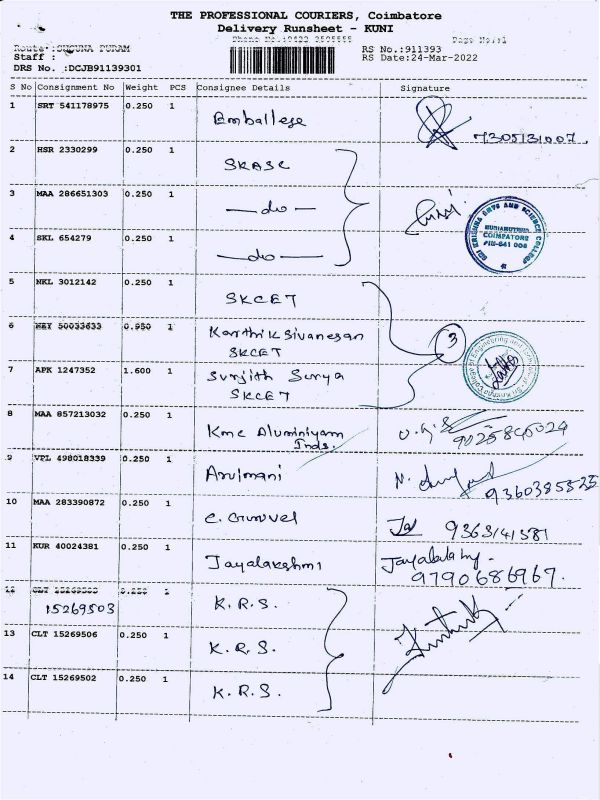 THE PROFESSIONAL COURIERS, Coimbatore
Delivery Runsheet - KUNI
Page No.:1
Route :SUGUNA PURAM
RS No.:911393
Staff :
RS Date:24-Mar-2022
DRS No. :DCJB91139301
S No Consignment No Weight PCS Consignee Details Signature
1 SRT 541178975 0.250 1 Emballege 7305131007
2 HSR 2330299 0.250 1 SKASC
3 MAA 286651303 0.250 1 —do—
SRI KRISHNA ARTS AND SCIENCE COLLEGE
KUNIAMUTHUR
COIMBATORE
PIN-641 008
4 SKL 654279 0.250 1 —do—
5 NKL 3012142 0.250 1 SKCET
6 50033633 0.950 1 Karthik Sivanesan
SKCET
3
7 APK 1247352 1.600 1 Surjith Surya
SKCET
8 MAA 857213032 0.250 1 Kmc Aluminiyam
Inds.
9 VPL 498018339 0.250 1 Arulmani
10 MAA 283390872 0.250 1 9363141581
11 KUR 40024381 0.250 1 Jayalakshmi
9790686967.
12 0.250 1 K.R.S.
15269503
13 CLT 15269506 0.250 1 K.R.S.
14 CLT 15269502 0.250 1 K.R.S.